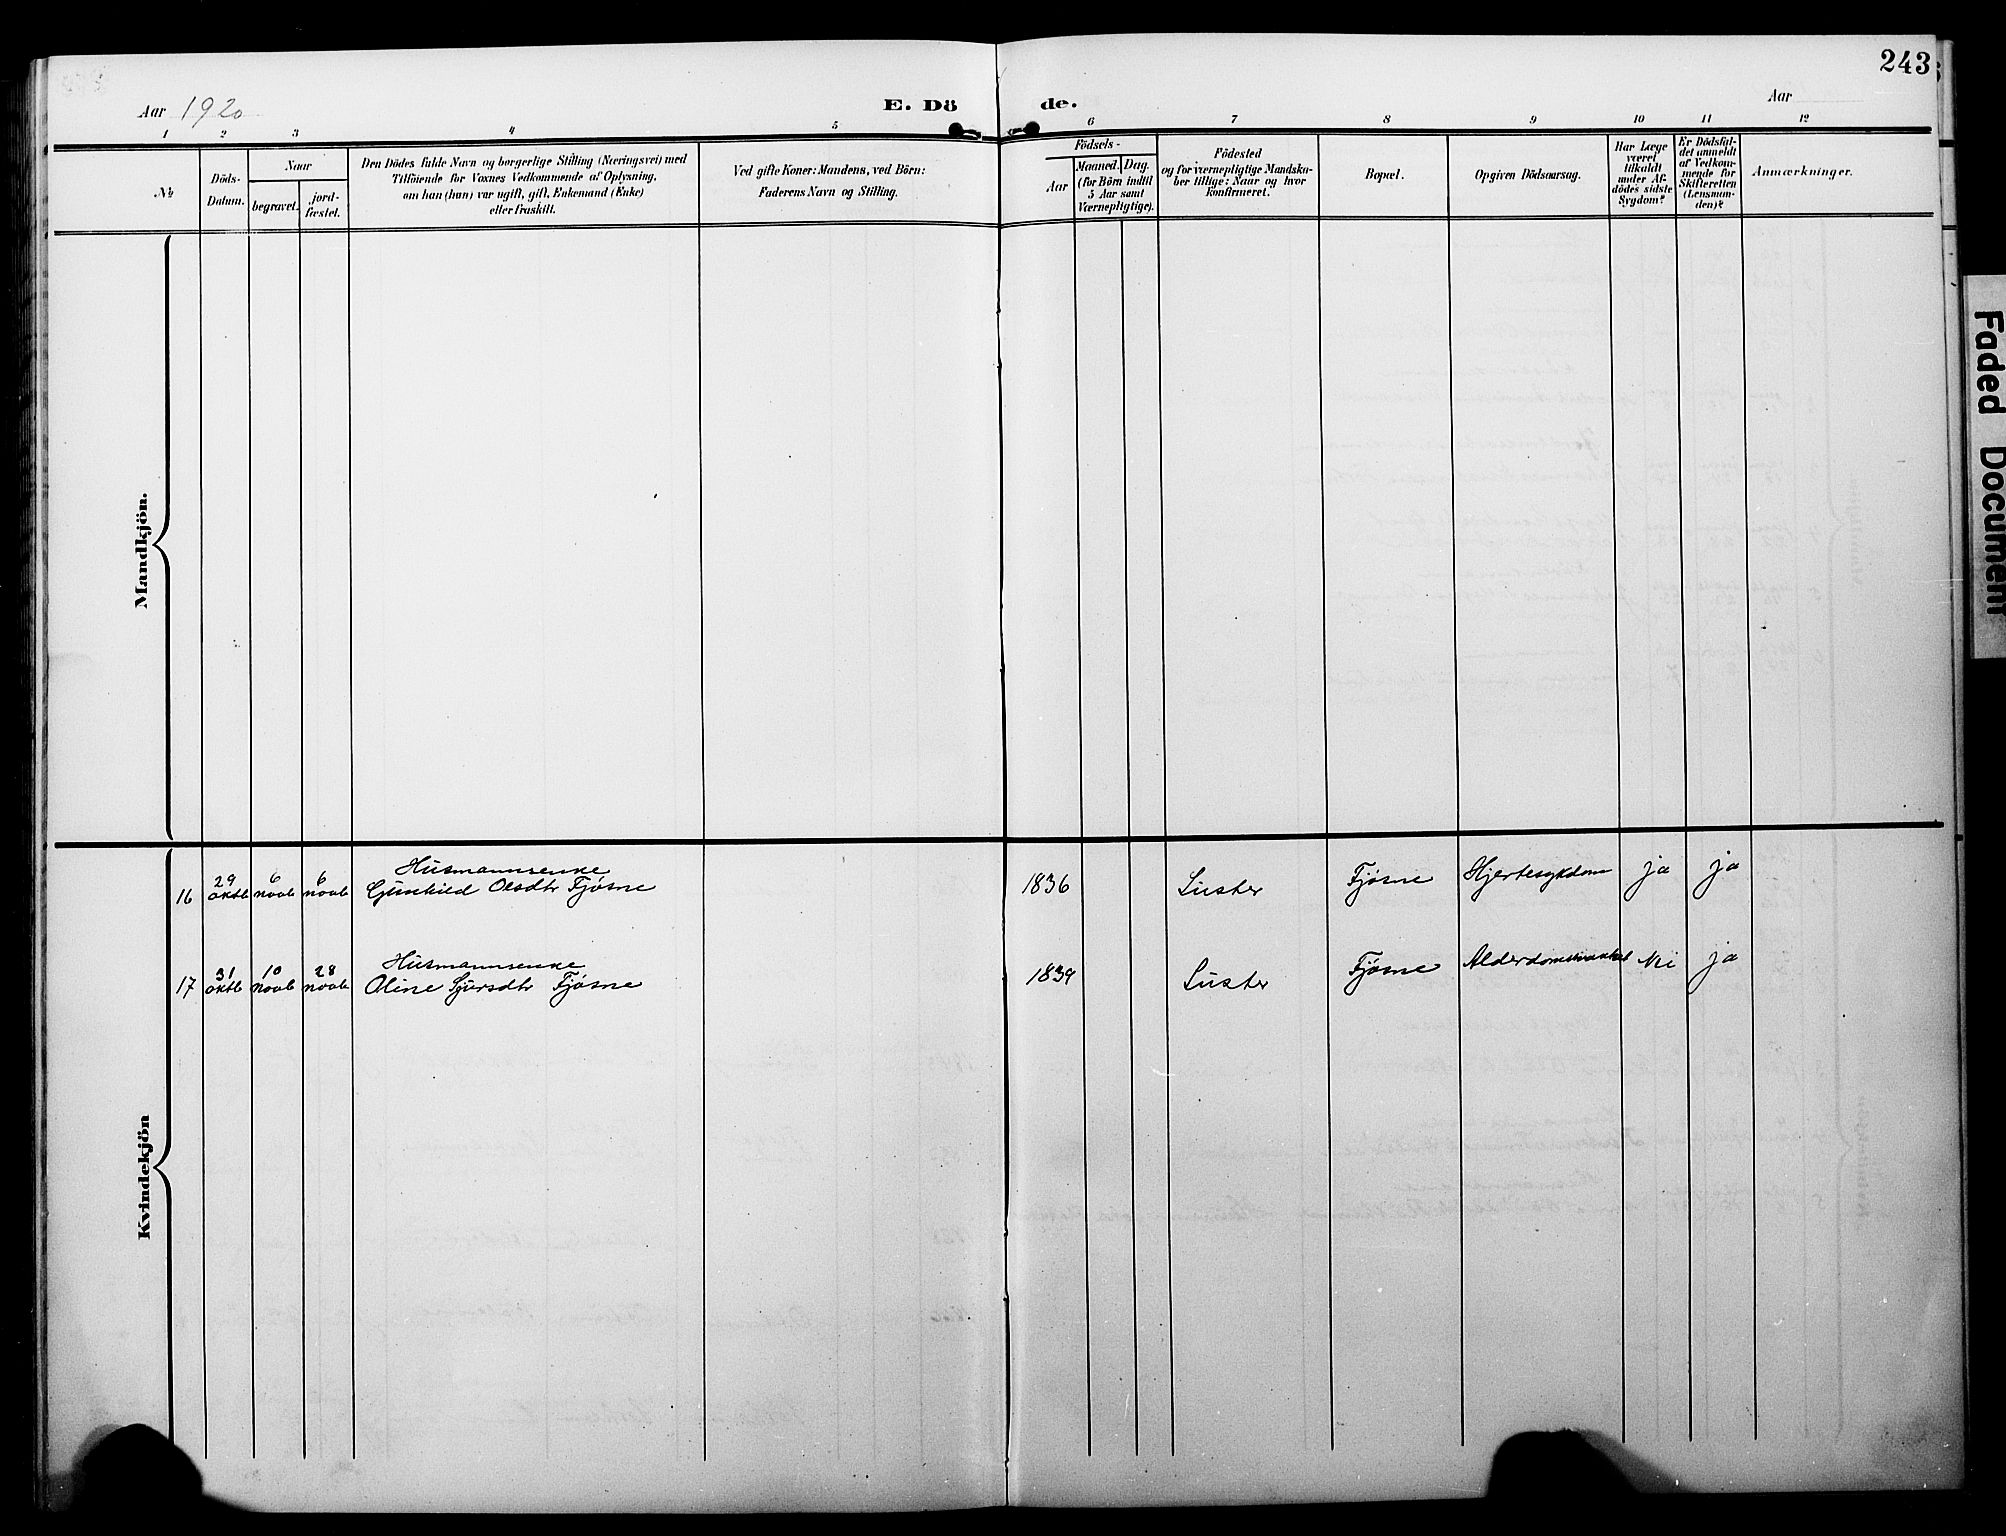 243
Aar 1920 E. Dö de. Aar
1 2 3 4 5 6 7 8 9 10 11 12
№
Döds-
Datum.
Naar
begravet.
jord-
fæstet.
Den Dödes fulde Navn og borgerlige Stilling (Næringsvei) med
Tilföiende for Voxnes Vedkommende af Oplysning,
om han (hun) var ugift, gift, Enkemand (Enke)
eller fraskilt.
Ved gifte Koner: Mandens, ved Börn:
Faderens Navn og Stilling.
Födsels-
Aar
Maaned. Dag.
(for Börn indtil
5 Aar samt
Værnepligtige).
Födested
og for værnepligtige Mandska-
ber tillige: Naar og hvor
konfirmeret.
Bopæl.
Opgiven Dödsaarsag.
Har Læge
været
tilkaldt
under Af-
dödes sidste
Sygdom?
Er Dödsfal-
det anmeldt
af Vedkom-
mende for
Skifteretten
(Lensman-
den)?
Anmærkninger.
Mandkjön.
Kvindekjön
29 6 6 Husmannsenke
16 oktb novb novb Gunhild Olsdtr Fjøsne 1836 Luster Fjøsne Hjertesykdom ja ja
31 10 28 Husmannsenke
17 oktb novb novb Oline Sjursdtr Fjøsne 1839 Luster Fjøsne Nei ja
Faded Document